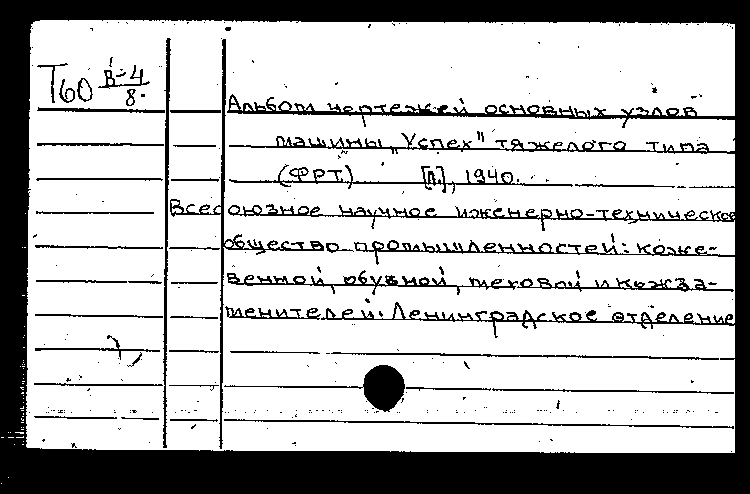 Т60 В-4/8.
Альбом чертежей основных узлов
машины „Успех" тяжелого типа
(ФРТ) [Л.], 1940.
Всесоюзное научное инженерно-техническое
общество промышленностей: коже-
венной, обувной, меховой и кожза-
менителей. Ленинградское отделение